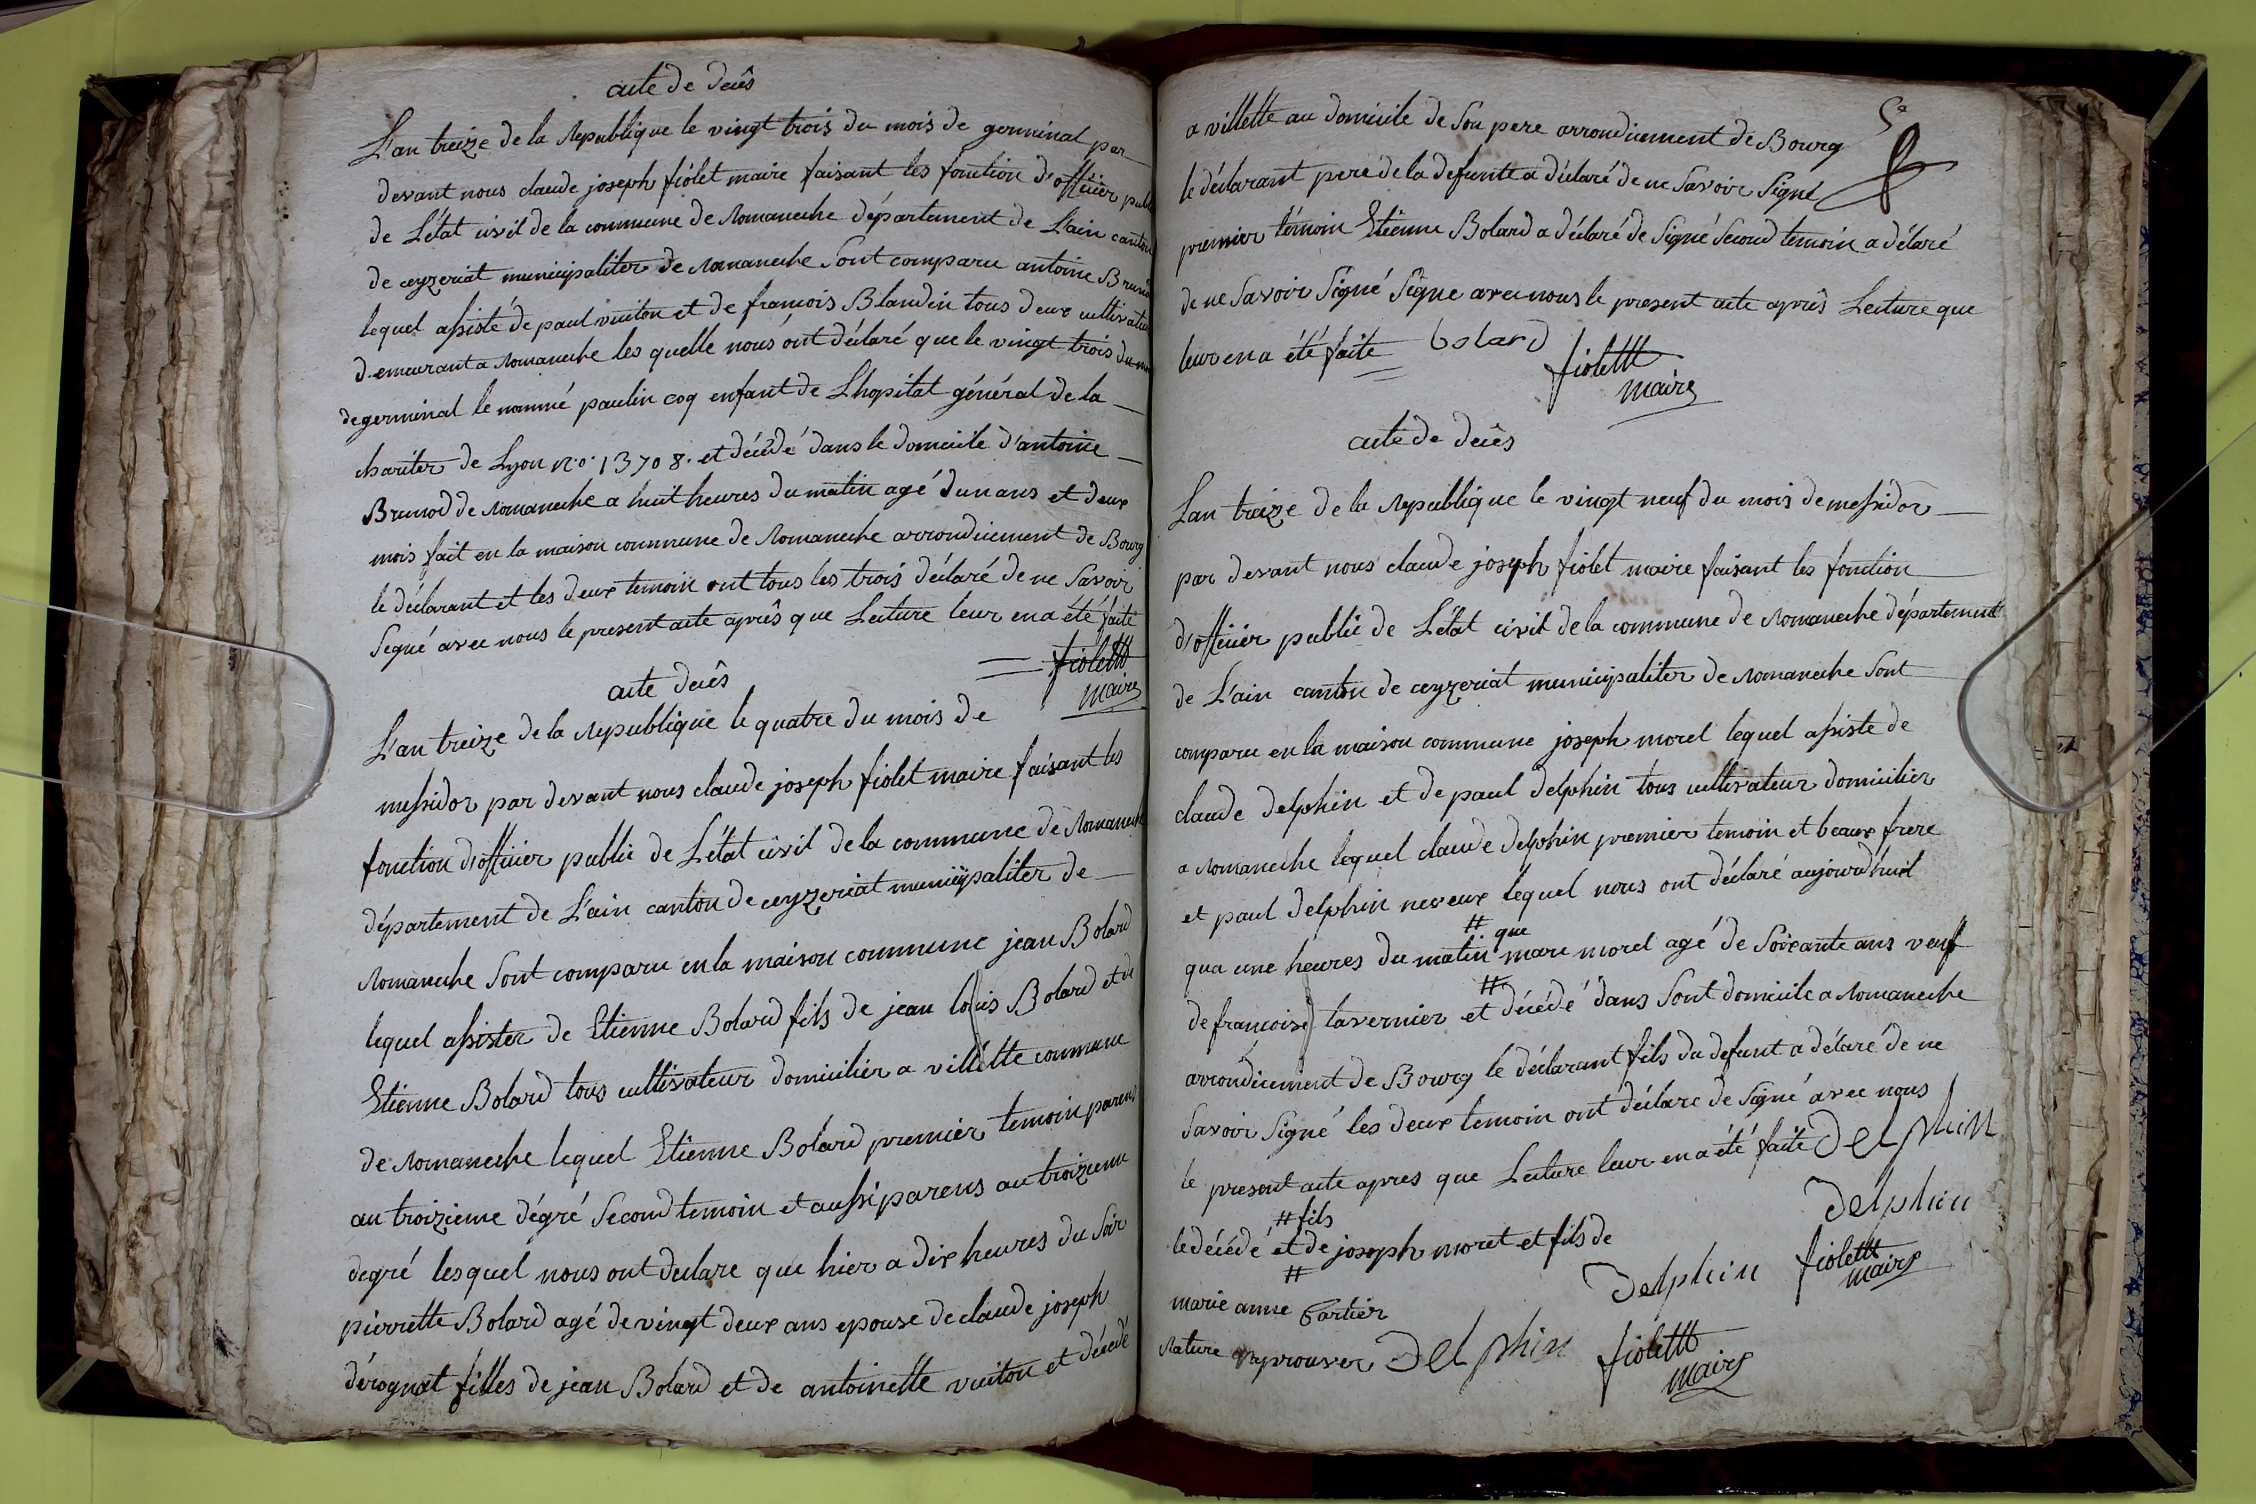 acte de decês
L'an treize de la republique le vingt trois du mois de germinal par
devant nous claude joseph fiolet maire faisant les fonction d'officier publ
de L'état civil de la commune de romaneche département de L'ain canton
de ceyzeriat municipaliter de romaneche sont comparu antoine Brunod
lequel assisté de paul vuiton et de francois Blandin tous deux cultivateur
demeurant a romaneche les quelle nous ont déclaré que le vingt trois du
de germinal le nommé paulin coq enfant de Lhopital général de la
chariter de Lyon n.o. 13708. et décédé dans le domicile d'antoine
Brunod de romaneche a huit heures du matin agé dun ans et deux
mois fait en la maison commune de romaneche arrondicement de Bourg
le déclarant et les deux temoin ont tous les trois déclaré de ne savoir
signé avec nous le present acte aprês que Lecture leur en a été faite
fiolettt
maire
acte decês
L'an treize de la republique le quatre du mois de
messidor par devant nous claude joseph fiolet maire faisant les
fonction d'officier public de L'état civil de la commune de romaneche
département de L'ain canton de ceyzeriat municipaliter de
romaneche sont comparu en la maison commune jean Bolard
lequel assister de Etienne Bolard fils de jean louis Bolard et de
Etienne Bolard tous cultivateur domicilier a villette commune
de romaneche lequel Etienne Bolard premier temoin parens
au troizieme dégré second temoin et aussi parens au troizieme
degré lesquel nous ont declare que hier a dix heures du soir
pierrette Bolard agé de vingt deux ans epouse de claude joseph
dérognat filles de jean Bolard et de antoinette vuiton et décédé
5e
a villette au domicile de son pere arrondicement de Bourg
le déclarant pere de la defunte a déclaré de ne savoir signé
premier témoin Etienne Bolard a déclaré de signé second temoin a délaré
de ne savoir signé signe avec nous le present acte aprês Lecture que
leur en a été faite bolard
fiolettt
maire
acte de decês
Lan treize de la republique le vingt neuf du mois de messidor
par devant nous claude joseph fiolet maire faisant les fonction
d'officier public de L'état civil de la commune de romaneche département
de L'ain canton de ceyzeriat municipaliter de romaneche sont
comparu en la maison commune joseph morel lequel assiste de
claude delphin et de paul delphin tous cultivateur domicilier
a romaneche lequel claude delphin premier temoin et beaux frere
et paul delphin neveux lequel nous ont déclaré aujourd'huit
# que
qua une heures du matin marc morel agé de soixante ans veuf
#
de francoise tavernier et décédé dans sont domicile a romaneche
arrondicement de Bourg le déclarant fils du defunt a délaré de ne
savoir signé les deux temoin ont déclare de signé avec nous
le present acte apres que Lecture leur en a été faite delphin
# fils
delphin
le décédé et de joseph moret et fils de
#
delphin fiolettt
maire
marie anne Cartier
rature approuver delphin fiolettt
maire